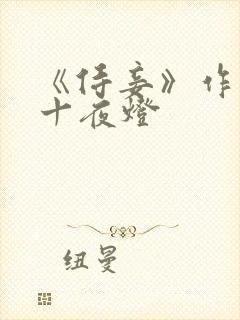 《侍妾》作
十夜燈
纽曼